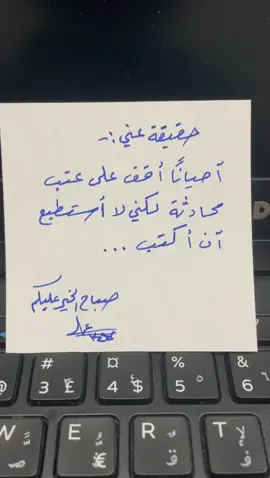 حقيقة عني :~
آحيانًا أقف على عتب
محادثة لكني لا أستطيع
آن أكتب ...
صباح الخير عليكم
D
# ¤ % &
@ 3 £ 4 $ 5 ° 6
W E R T